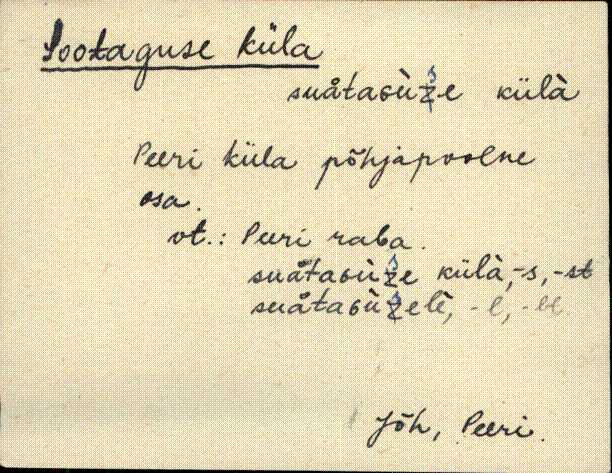 Sootaguse küla
suåtaɢùže külà
Peeri küla põhjapoolne
osa.
vt.: Peeri raba.
suåtaɢùže külà, -s, -st
suåtaɢùželè, -l, -lt
Jõh, Peeri.